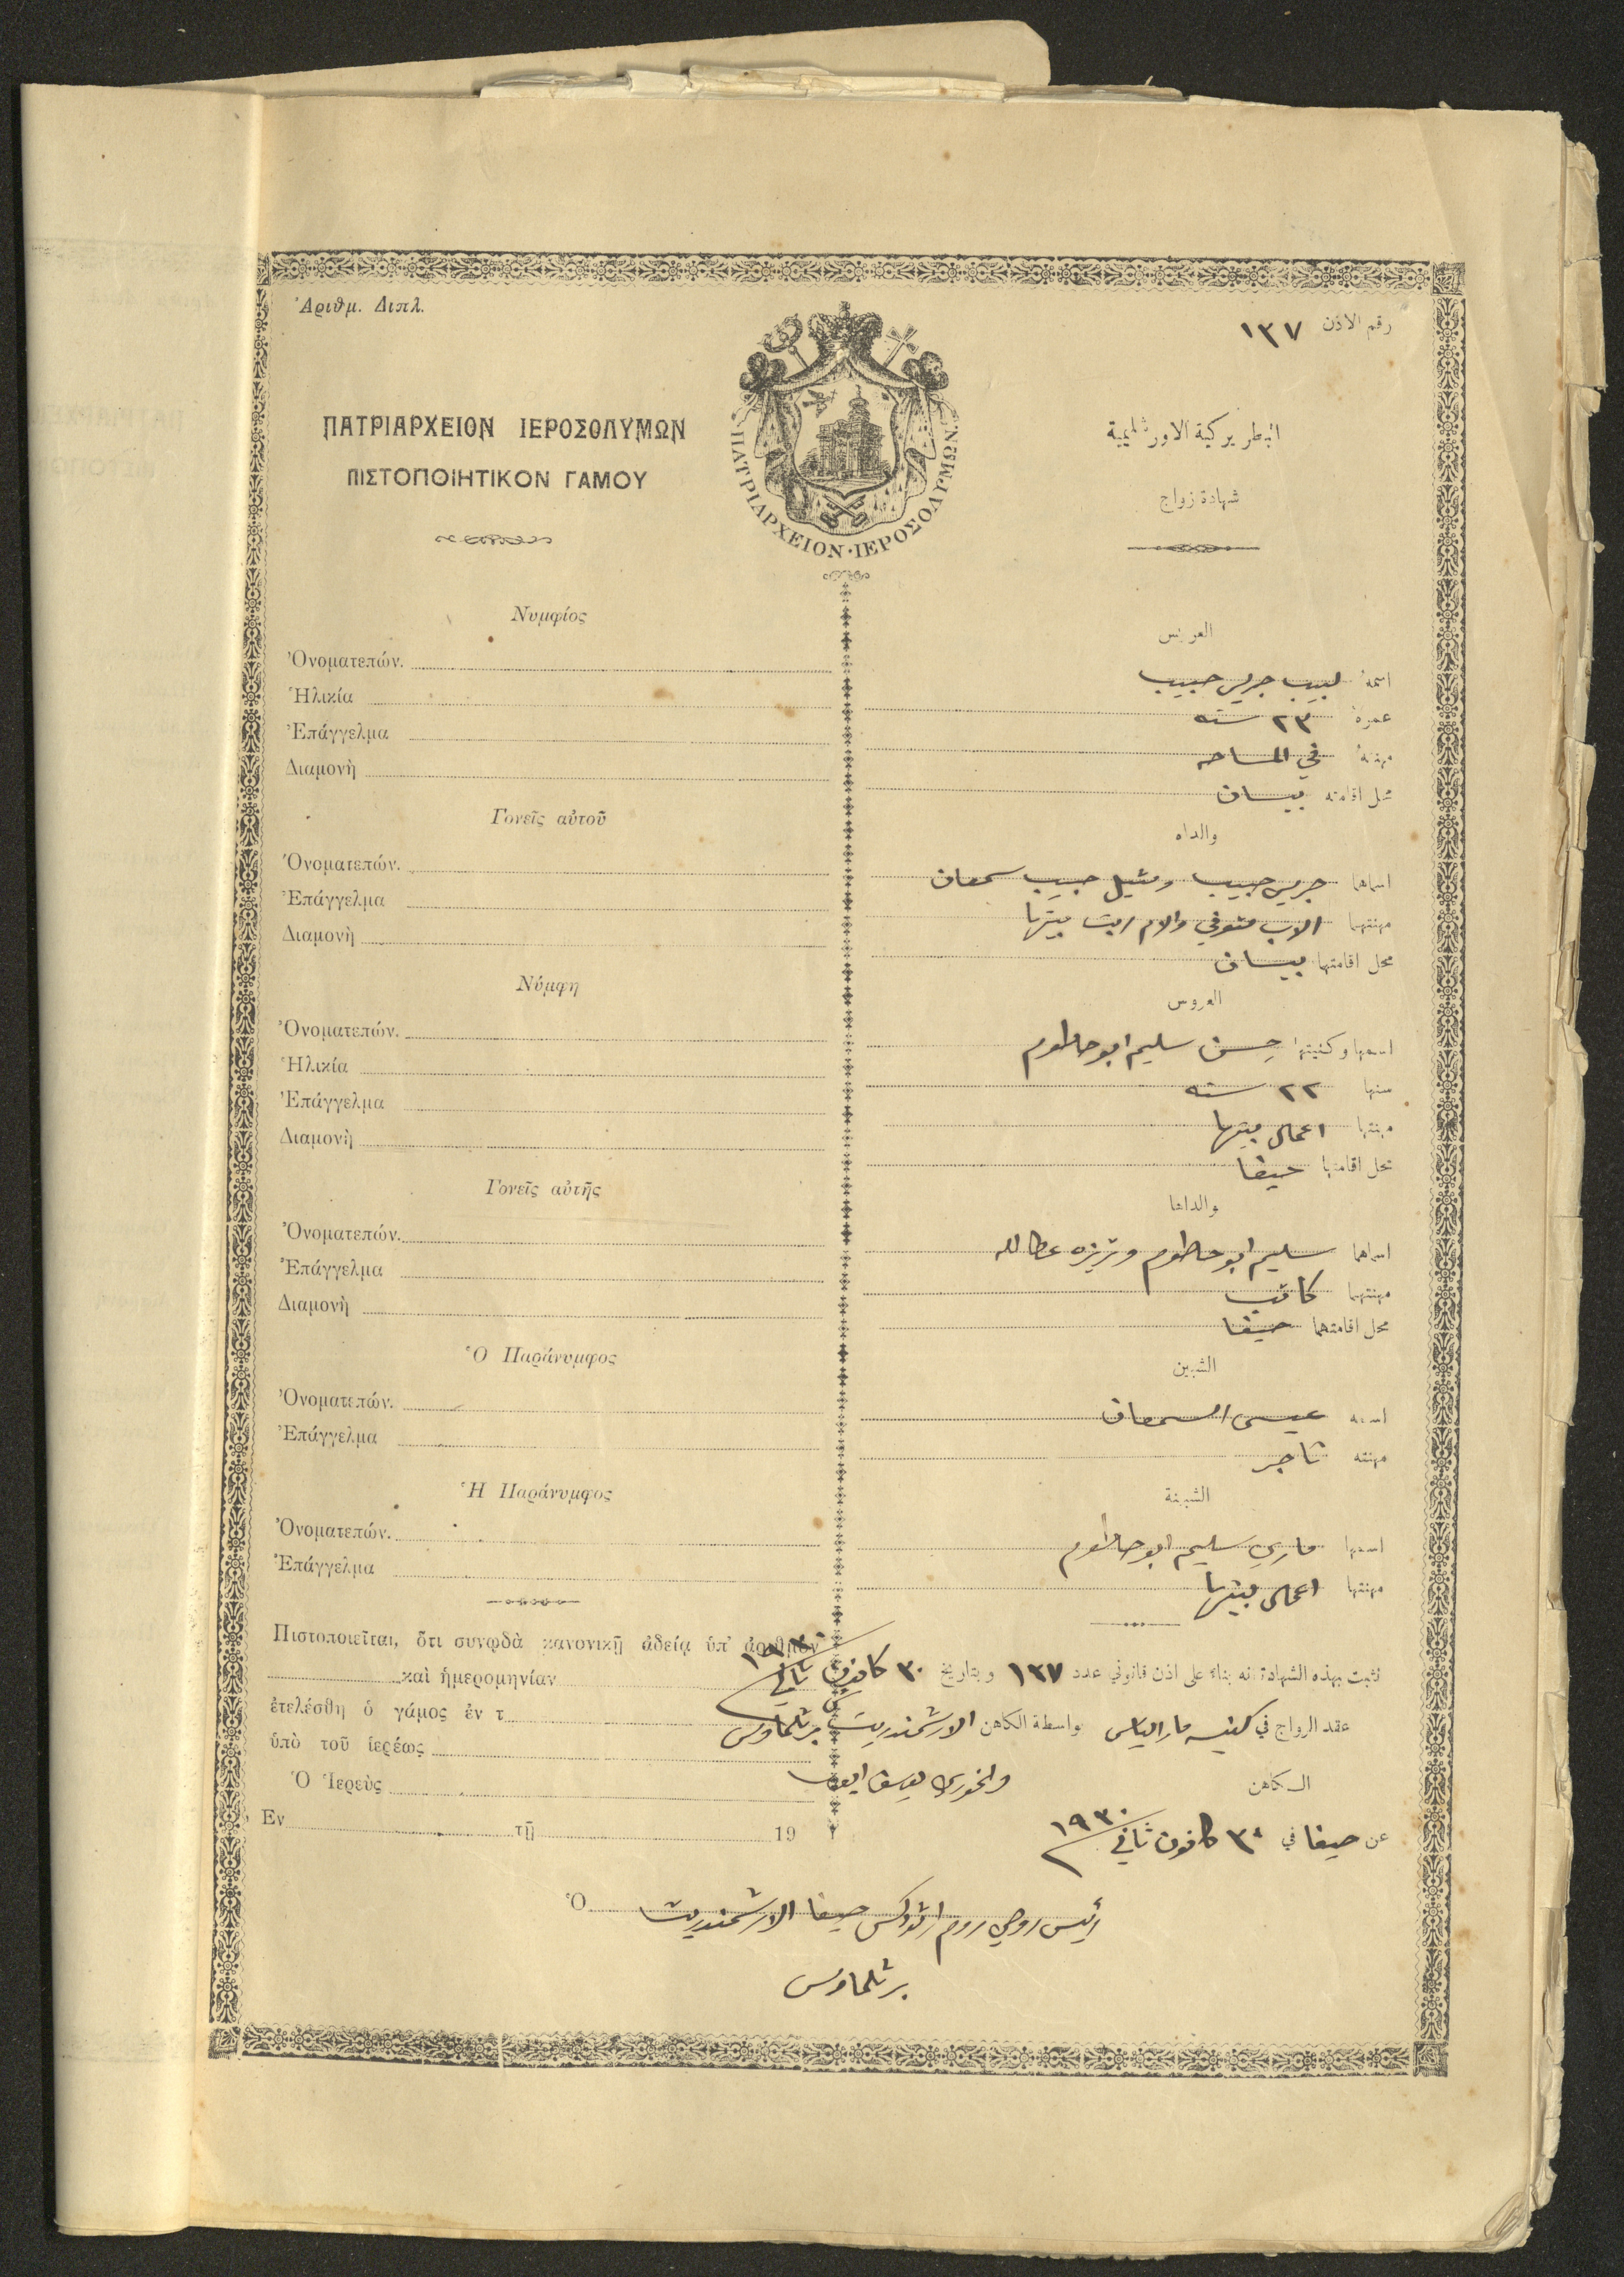 Ἀριθμ. Διπλ.
رقم الاذن ١٣٧
ΠΑΤΡΙΑΡΧΕΙΟΝ ΙΕΡΟΣΟΛΥΜΩΝ
ΠΙΣΤΟΠΟΙΗΤΙΚΟΝ ΓΑΜΟΥ
ΠΑΤΡΙΑΡΧΕΙΟΝ·ΙΕΡΟΣΟΛΥΜΩΝ
البطريركية الاورشليمية
شهادة زواج
Νυμφίος
Ὀνοματεπών.
Ἡλικία
Ἐπάγγελμα
Διαμονὴ
Γονεῖς αὐτοῦ
Ὀνοματεπών.
Ἐπάγγελμα
Διαμονὴ
Νύμφη
Ὀνοματεπών.
Ἡλικία
Ἐπάγγελμα
Διαμονὴ
Γονεῖς αὐτῆς
Ὀνοματεπών.
Ἐπάγγελμα
Διαμονὴ
Ὁ Παράνυμφος
Ὀνοματεπών.
Ἐπάγγελμα
Ἡ Παράνυμφος
Ὀνοματεπών.
Ἐπάγγελμα
Πιστοποιεῖται, ὅτι συνῳδὰ κανονικῇ ἀδείᾳ ὑπ' ἀριθμὸν
καὶ ἡμερομηνίαν
ἐτελέσθη ὁ γάμος ἐν τ
ὑπὸ τοῦ ἱερέως
Ὁ Ἱερεὺς
Εν τῇ 19
العريس
اسمهُ لبيب جريس حبيب
عمره ٢٣ سنه
مهنتهُ في المساحه
محل اقامته بيسان
والداه
اسماهما جريس حبيب و حبيب سمعان
مهنتهما الاب متوفي والام بيتها
محل اقامتهما بيسان
العروس
اسمها وكنيتها حسن سليم ابو حاطوم
سنها ٢٢ سنه
مهنتها اعمال بيتها
محل اقامتها حيفا
والداها
اسماهما سليم ابو حاطوم وتريزه عطالله
مهنتهما كاتب
محل اقامتهما حيفا
الشبين
اسمه عيسى السمعان
مهنته تاجر
الشبينة
اسمها ماري سليم ابو حاطوم
مهنتها اعمال بيتها
نثبت بهذه الشهادة انه بناءً على اذن قانوني عدد ١٣٧ وبتاريخ ٣٠ كانون ثاني ١٩٣٠
عقد الزواج في كنيسه مار الياس بواسطة الكاهن الارشمندريت برثلماوس
الكاهن والخوري يوسف ايوب
عن حيفا في ٣٠ كانون ثاني ١٩٣٠
Ὁ
رئيس روحي روم ارثوذكس حيفا الارشمندريت
برثلماوس